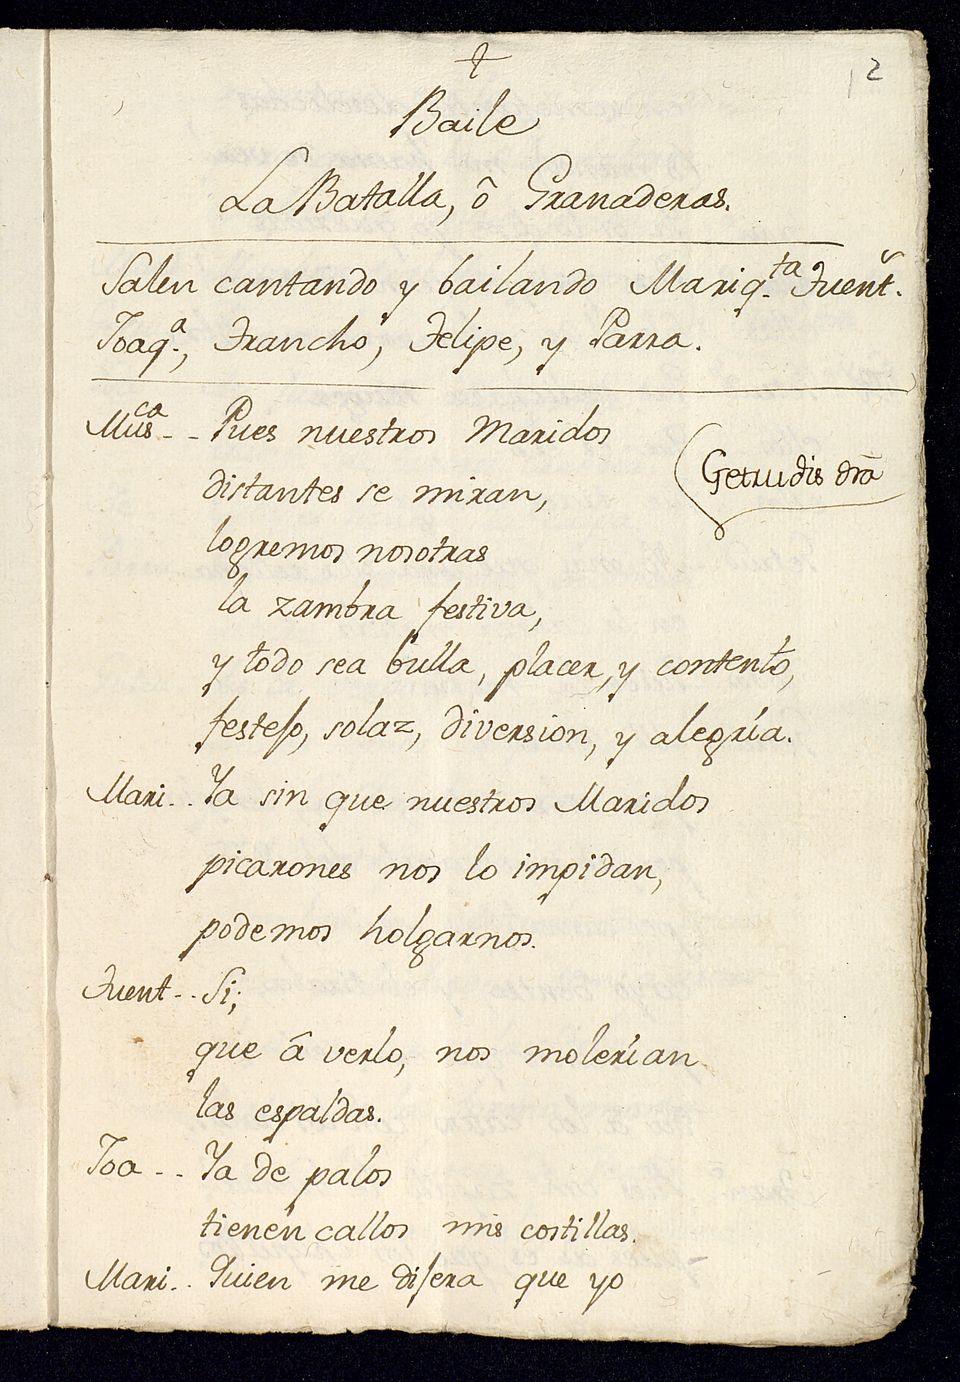 2
Baile
La Batalla, ô Granaderas.
Salen cantando y bailando Mariq.ta Fuent.s
Joaq.a, Francho, Felipe, y Parra.
Mus.ca - - Pues nuestros Maridos
distantes se miran,
Getrudis dra
logremos nosotras
la zambra festiva,
y todo sea bulla, placer, y contento,
festejo, solaz, diversion, y alegría.
Mari. . Ya sin que nuestros Maridos
picarones nos lo impidan,
podemos holgarnos.
Fuent - - Si;
que â verlo, nos molerían
las espaldas.
Joa - - Ya de palos
tienen callos mis costillas.
Mari . . Quien me dijera que yo